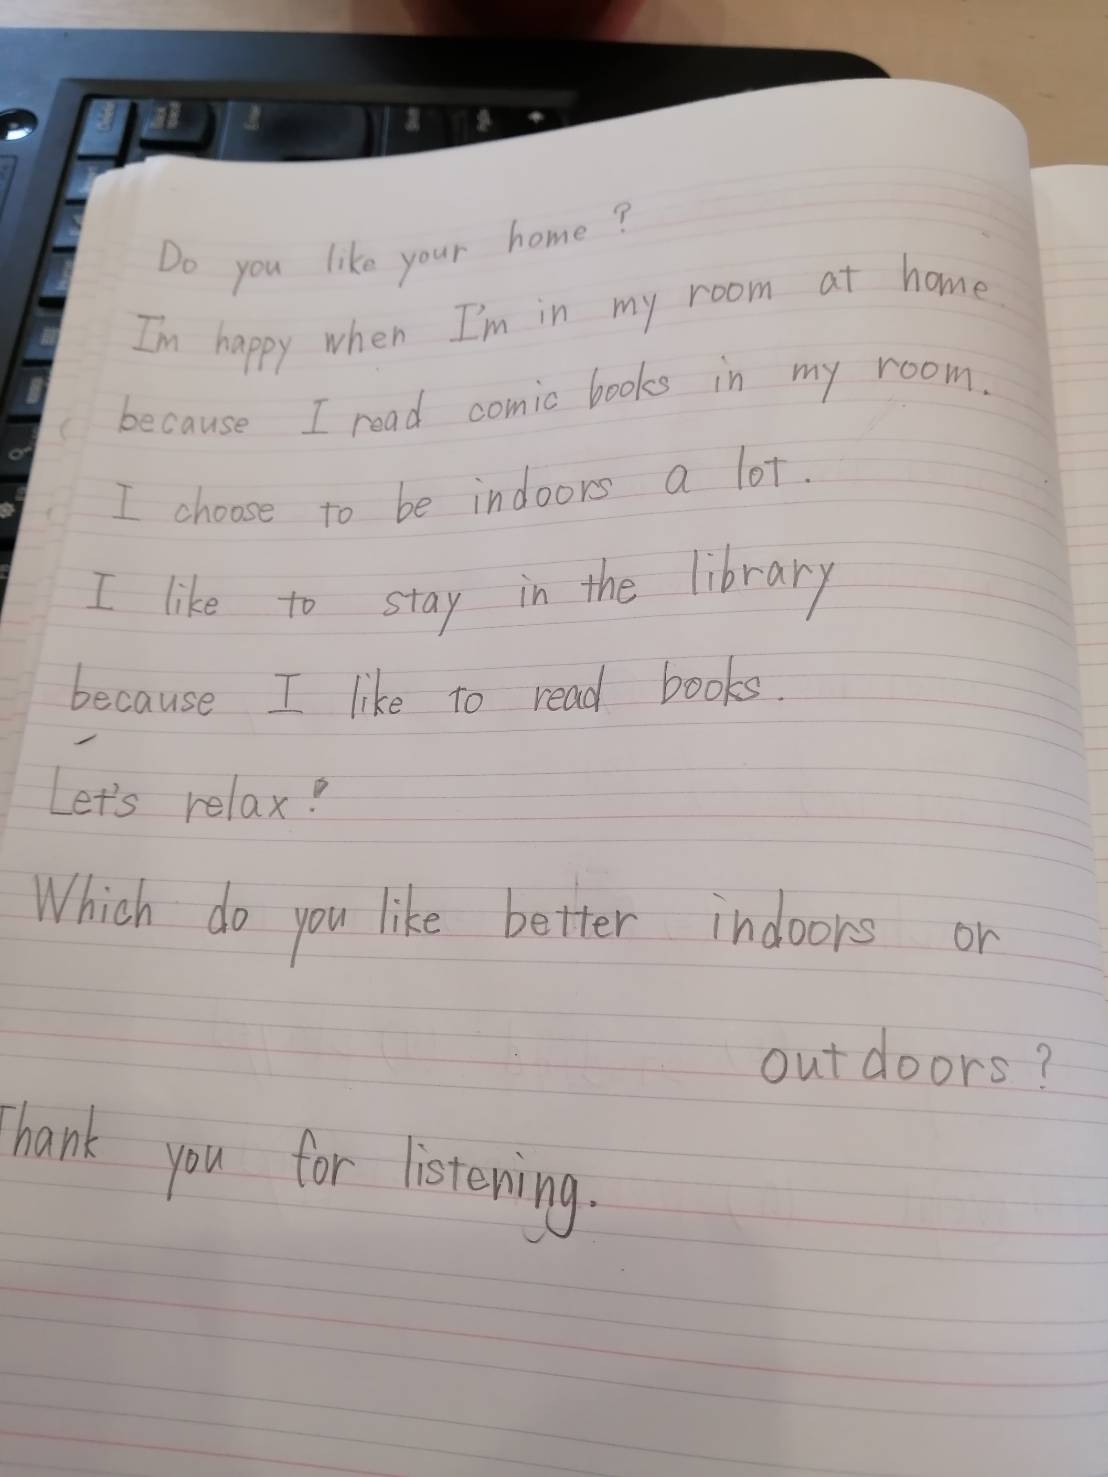 Do you like your home?
I'm happy when I'm in my room at home
because I read comic books in my room.
I choose to be indoors a lot.
I like to stay in the library
because I like to read books.
Let's relax!
Which do you like better indoors or
outdoors?
Thank you for listening.